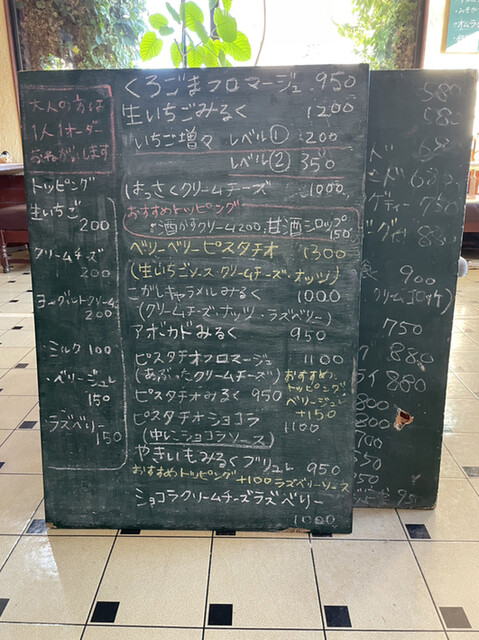 大人の方は
1人1オーダー
おねがいします
トッピング
生いちご
200
クリームチーズ
200
ヨーグルトクリーム
200
・ミルク 100
・ベリージュレ
150
ラズベリー
150
くろごまフロマージュ 950
生いちごみるく 1200
いちご増々 レベル① 200
レベル② 350
はっさくクリームチーズ 1000
おすすめトッピング
酒かすクリーム200、甘酒シロップ
150
ベリーベリーピスタチオ 1300
(生いちごソース・クリームチーズ・ナッツ)
こがしキャラメルみるく 1000
(クリームチーズ・ナッツ・ラズベリー)
アボカドみるく 950
ピスタチオフロマージュ 1100
(あぶったクリームチーズ)
ピスタチオみるく 950
おすすめ
トッピング
ベリージュレ
+150
ピスタチオショコラ 1100
(中にショコラソース)
やきいもみるくブリュレ 950
おすすめトッピング+100ラズベリーソース
ショコラクリームチーズラズベリー
1000
580
680
900
クリームコロッケ)
750
880
ライ 880
800
700
550
750